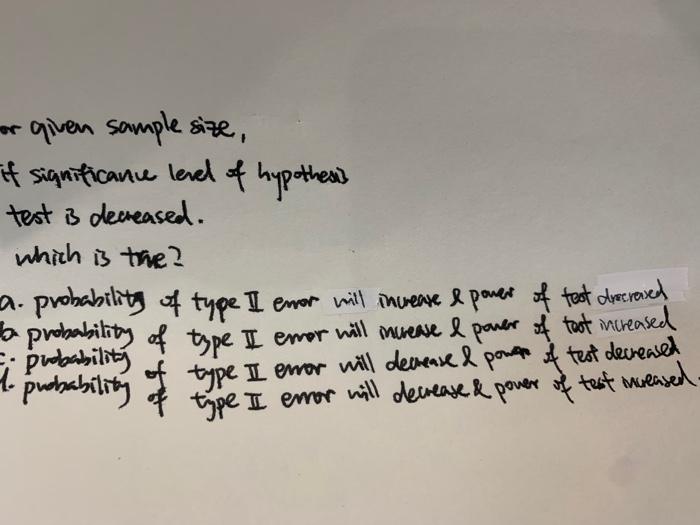 or given sample size,
if significance level of hypothesis
test is decreased.
which is true?
a. probability of type II error will increase & power of test drecreased
b probability of type II error will increase & power of test increased
c. probability of type II error will decrease & power of test decreased
d. probability of type II error will decrease & power of test increased.